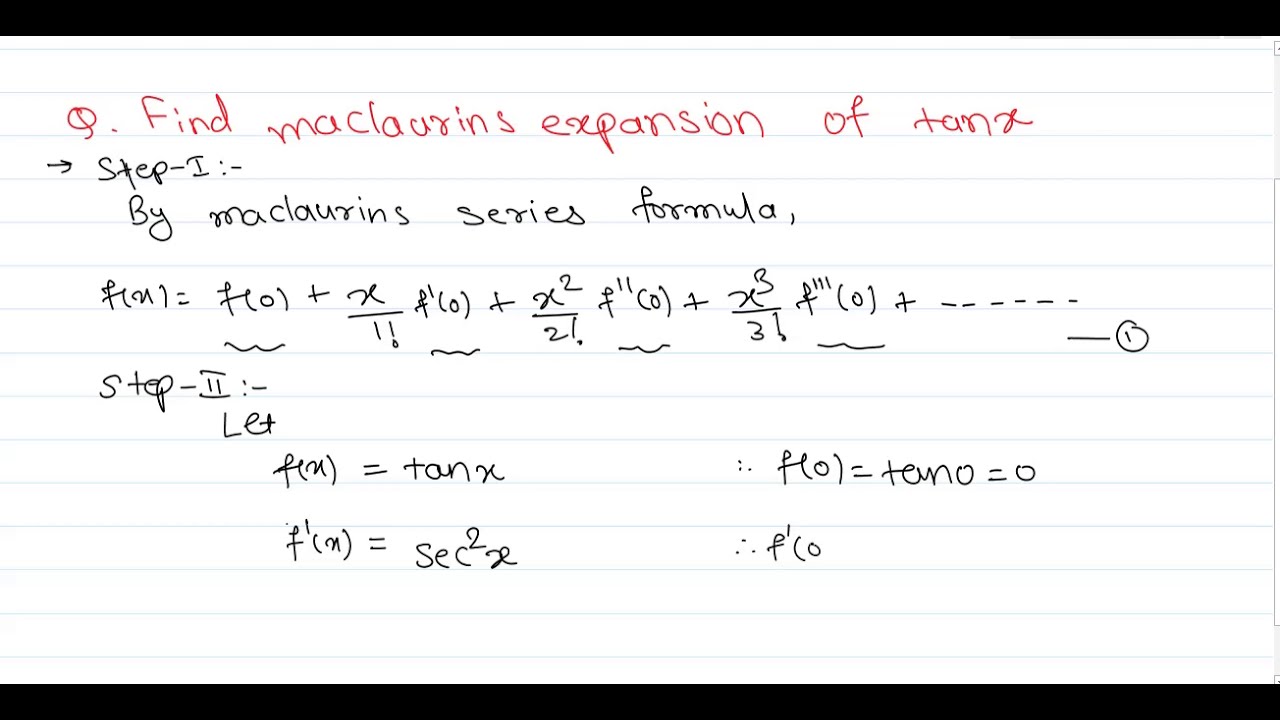 Q. Find maclaurins expansion of tanx
→ Step-I :-
By maclaurins series formula,
f(x) = f(0) + x/1! f'(0) + x²/2! f''(0) + x³/3! f'''(0) + ------
—①
Step-II :-
Let
f(x) = tanx ∴ f(0) = tan0 = 0
f'(x) = sec²x ∴ f'(0